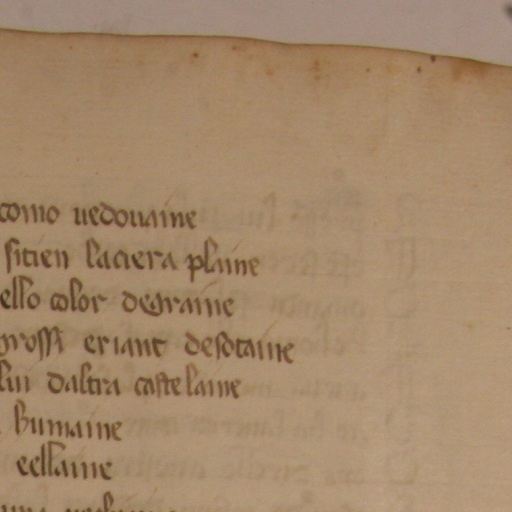 como uedouaine
sitien laciera plaine
ello color degraine
grossi eriant desotaine
lui daltra castelaine
humaine
cellaine